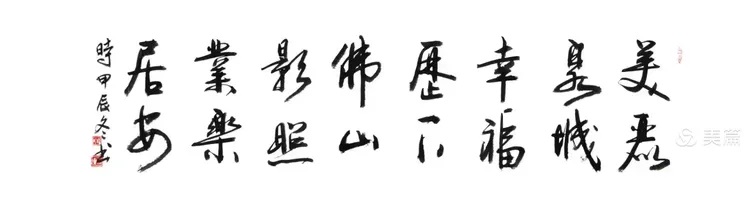 美麗
泉城
幸福
歷下
佛山
影照
業樂
居安
時甲辰冬書
美篇